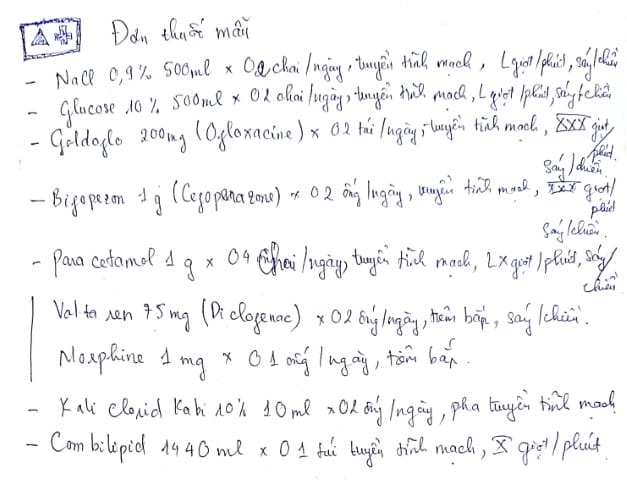 Đơn thuốc mẫu
- NaCl 0,9% 500ml x 02 chai/ngày, truyền tĩnh mạch, L giọt/phút, sáng/chiều
- Glucose 10% 500ml x 02 chai/ngày, truyền tĩnh mạch, L giọt/phút, sáng/chiều
- Goldoflo 200mg (Ofloxacine) x 02 túi/ngày, truyền tĩnh mạch, XXX giọt/phút. sáng/chiều
- Bifopezon 1g (Cefoperazone) x 02 ống/ngày, truyền tĩnh mạch, XXX giọt/phút sáng/chiều.
- Paracetamol 1g x 04 chai/ngày, truyền tĩnh mạch, LX giọt/phút, sáng/chiều
Valtaren 75mg (Diclofenac) x 02 ống/ngày, tiêm bắp, sáng/chiều.
Morphine 1mg x 01 ống/ngày, tiêm bắp.
- Kali Clorid Kabi 10% 10ml x 02 ống/ngày, pha truyền tĩnh mạch
- Combilipid 1440ml x 01 túi truyền tĩnh mạch, X giọt/phút